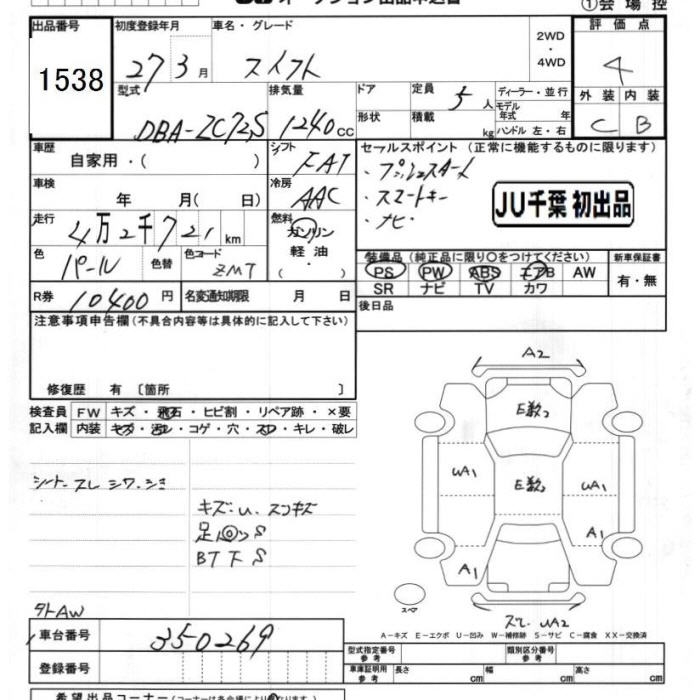 ①会場控
出品番号 初度登録年月 車名・グレード 2WD・4WD 評価点
1538 27 3月 スイフト 4
型式 排気量 ドア 定員 5人 ディーラー・並行 外装 内装
DBA-ZC72S 1240cc 形状 積載 kg モデル年式 年 ハンドル 左・右 C B
車歴 自家用・( ) シフト FAT
セールスポイント (正常に機能するものに限ります)
・プッシュスタート
・スマートキー
・ナビ
JU千葉 初出品
車検 年 月( 日) 冷房 AAC
走行 4万2千721km 燃料 ガソリン 軽油 ・( )
色 パール 色替 色コード ZMT
装備品 (純正品に限り○をつけてください) 新車保証書
PS PW ABS エアB AW 有・無
SR ナビ TV カワ
R券 10400円 名変通知期限 月 日
後日品
注意事項申告欄 (不具合内容等は具体的に記入して下さい)
修復歴 有 〔箇所 〕
検査員 FW キズ・飛石・ヒビ割・リペア跡・×要
記入欄 内装 キズ・汚レ・コゲ・穴・スレ・キレ・破レ
シート スレ シワ
キズ・U
BT下 S
A2
E歎2
UA1 E歎2 UA1
A1
A1
スペア
スレ・UA2
外AW
A-キズ E-エクボ U-凹み W-補修跡 S-サビ C-腐食 XX-交換済
車台番号 350269
型式指定番号 参考 類別区分番号 参考
登録番号 車庫証明用 参考 長さ cm 幅 cm 高さ cm
希望出品コーナー